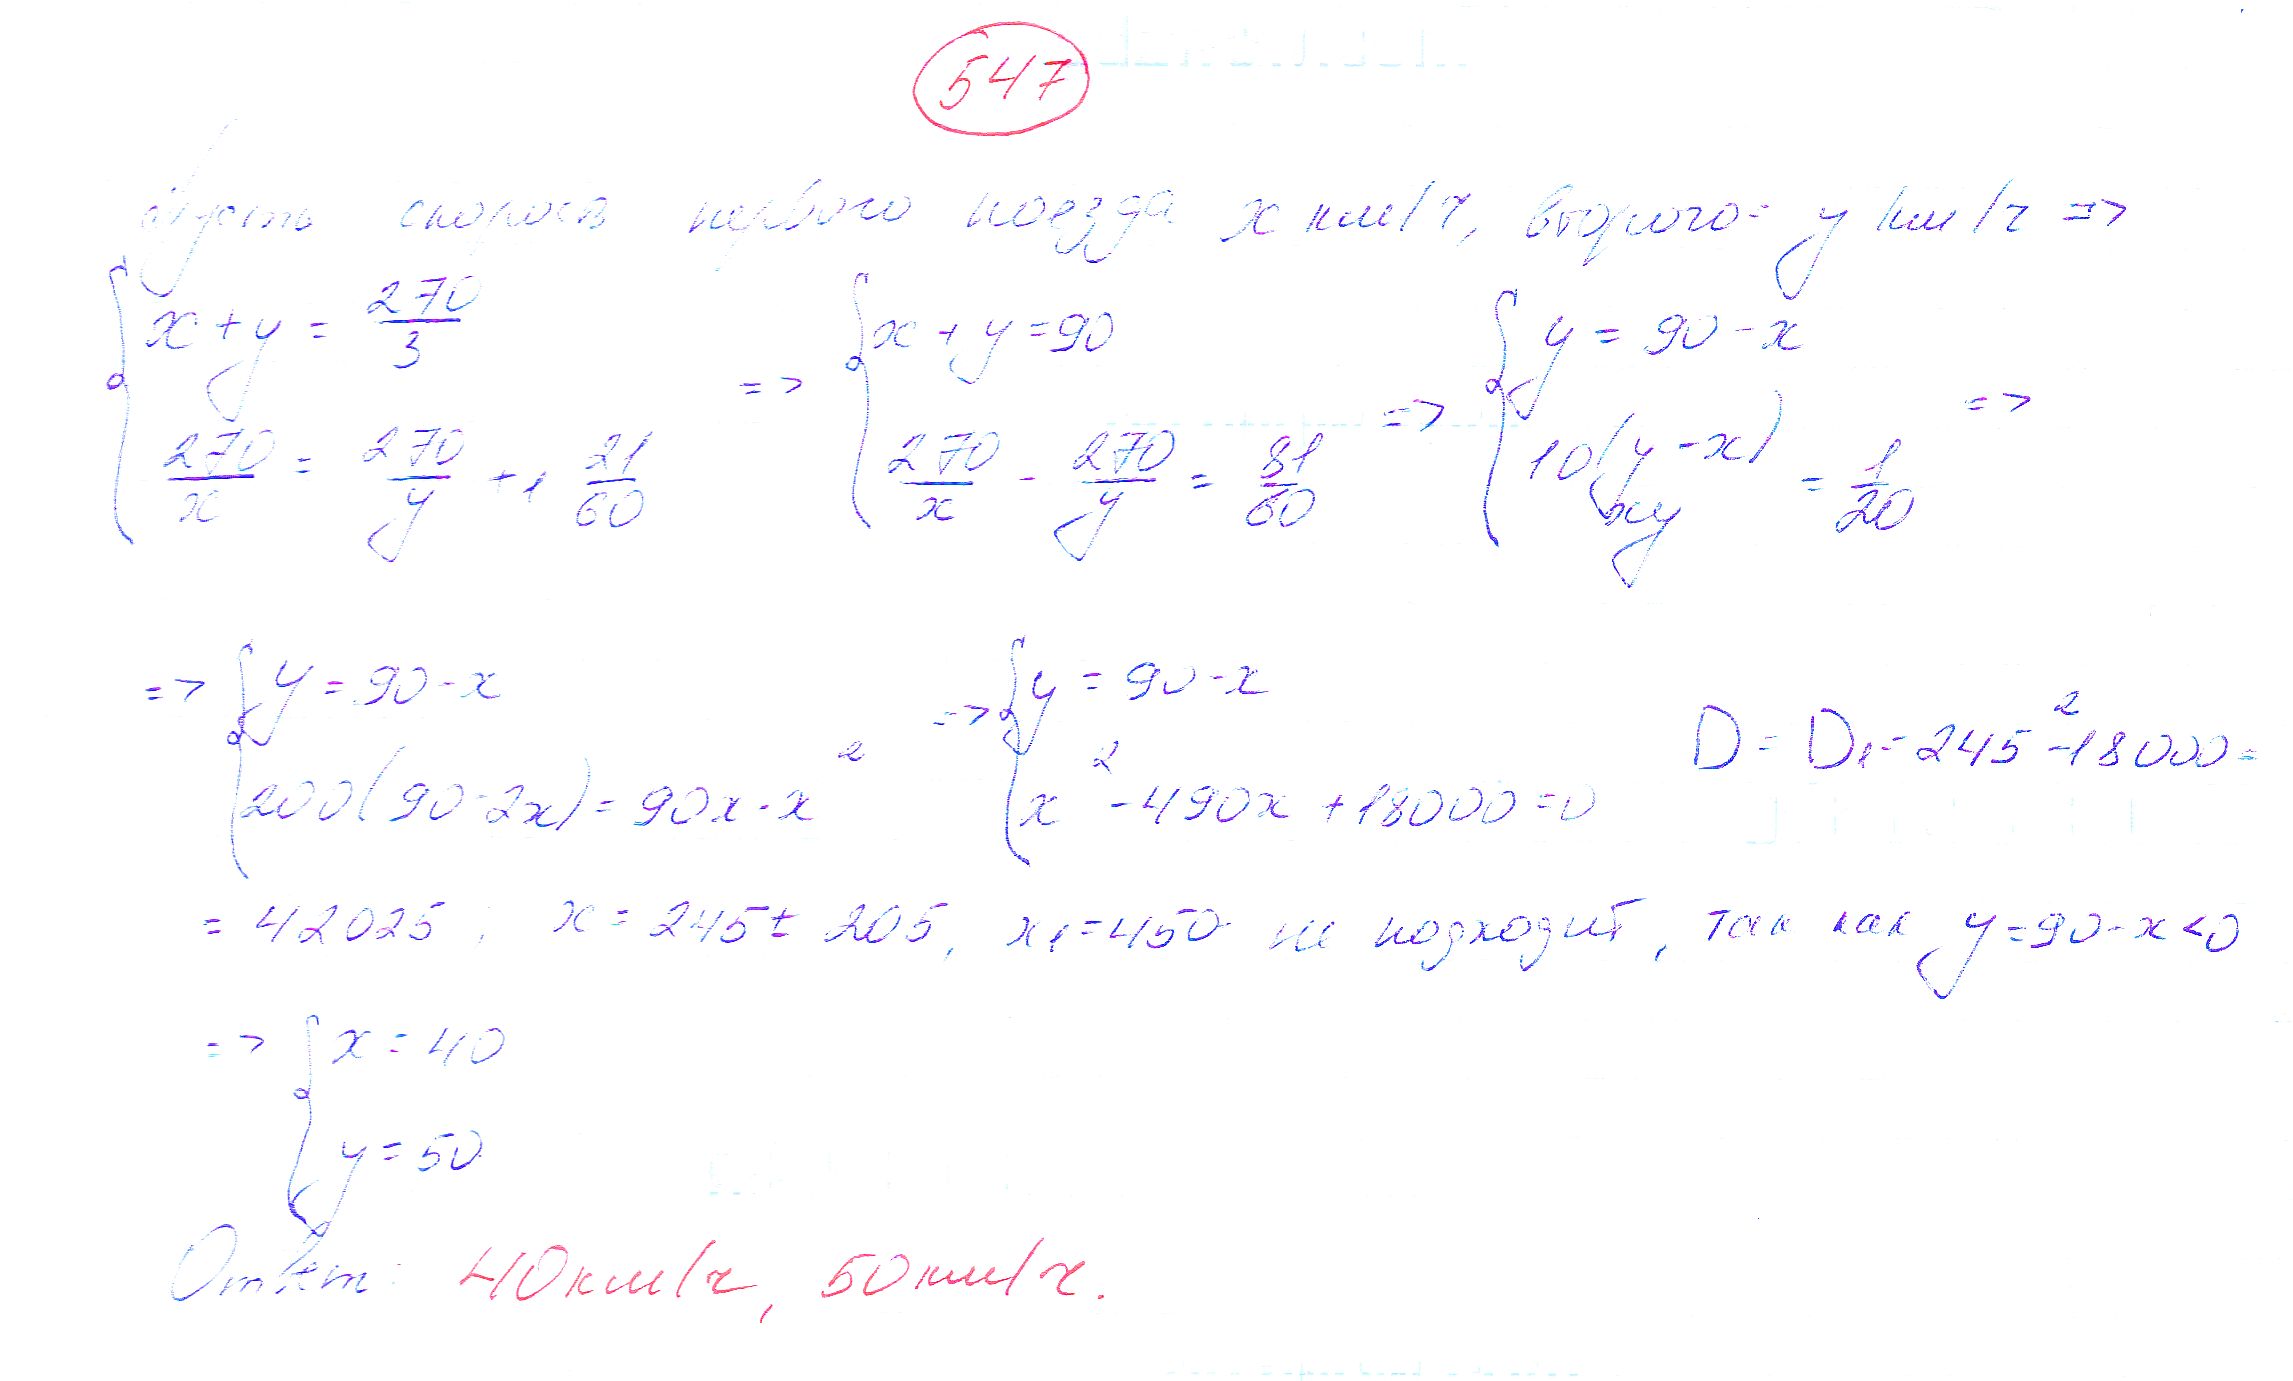 547
Пусть скорость первого поезда x км/ч, второго - y км/ч =>
{ x + y = 270/3 ; 270/x = 270/y + 1 21/60 => { x + y = 90 ; 270/x - 270/y = 81/60 => { y = 90 - x ; 10(y - x)/xy = 1/20 =>
=> { y = 90 - x ; 200(90 - 2x) = 90x - x² => { y = 90 - x ; x² - 490x + 18000 = 0 D = D₁ = 245² - 18000 =
= 42025; x = 245 ± 205, x₁ = 450 не подходит, так как y = 90 - x < 0
=> { x = 40 ; y = 50
Ответ: 40 км/ч, 50 км/ч.